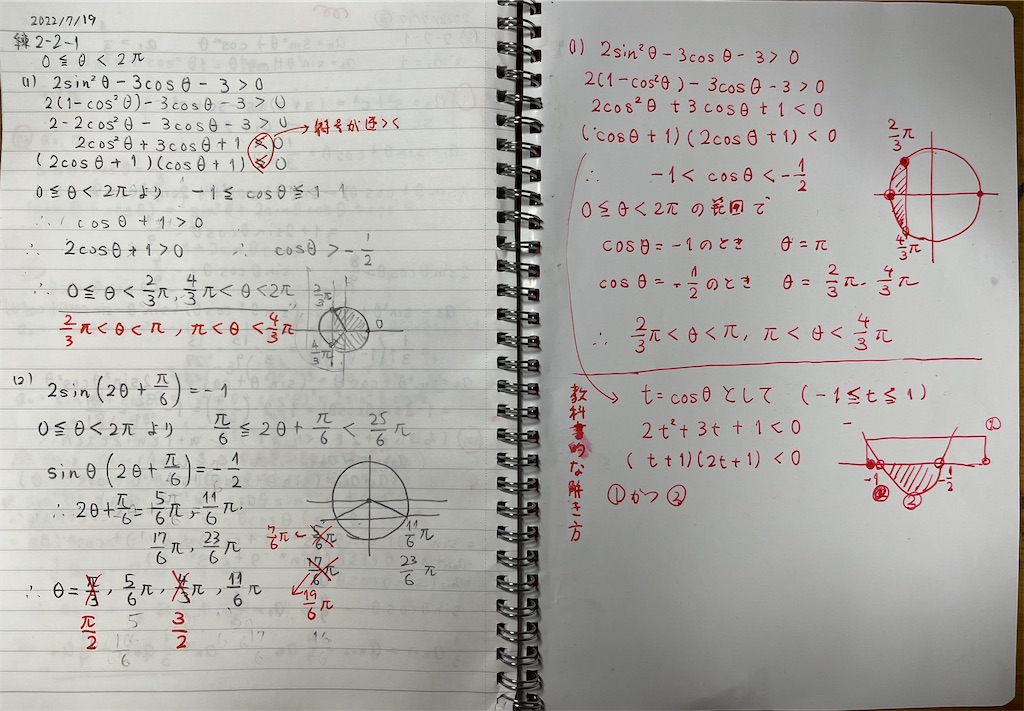 2022/7/19
練2-2-1
0≦θ<2π
(1) 2sin²θ-3cosθ-3>0
2(1-cos²θ)-3cosθ-3>0
2-2cos²θ-3cosθ-3>0
2cos²θ+3cosθ+1≦0 →符号が逆っく
(2cosθ+1)(cosθ+1)≦0
0≦θ<2πより -1≦cosθ≦1
∴ cosθ+1>0
∴ 2cosθ+1>0 ∴ cosθ>-1/2
∴ 0≦θ<2/3π, 4/3π<θ<2π
2/3π<θ<π, π<θ<4/3π
2/3π
0
4/3π
(2) 2sin(2θ+π/6)=-1
0≦θ<2πより π/6≦2θ+π/6<25/6π
sinθ(2θ+π/6)=-1/2
∴ 2θ+π/6=5/6π, 11/6π.
17/6π, 23/6π
7/6π 5/6π 11/6π
17/6π 23/6π
19/6π
∴ θ=π/3, 5/6π, 4/3π, 11/6π
π/2 3/2
(1) 2sin²θ-3cosθ-3>0
2(1-cos²θ)-3cosθ-3>0
2cos²θ+3cosθ+1<0
(cosθ+1)(2cosθ+1)<0
∴ -1<cosθ<-1/2
2/3π
4/3π
0≦θ<2πの範囲で
cosθ=-1のとき θ=π
cosθ=-1/2のとき θ=2/3π, 4/3π
∴ 2/3π<θ<π, π<θ<4/3π
教科書的な解き方
t=cosθとして (-1≦t≦1)
2t²+3t+1<0
(t+1)(2t+1)<0
①かつ②
①
-1 -1/2
②